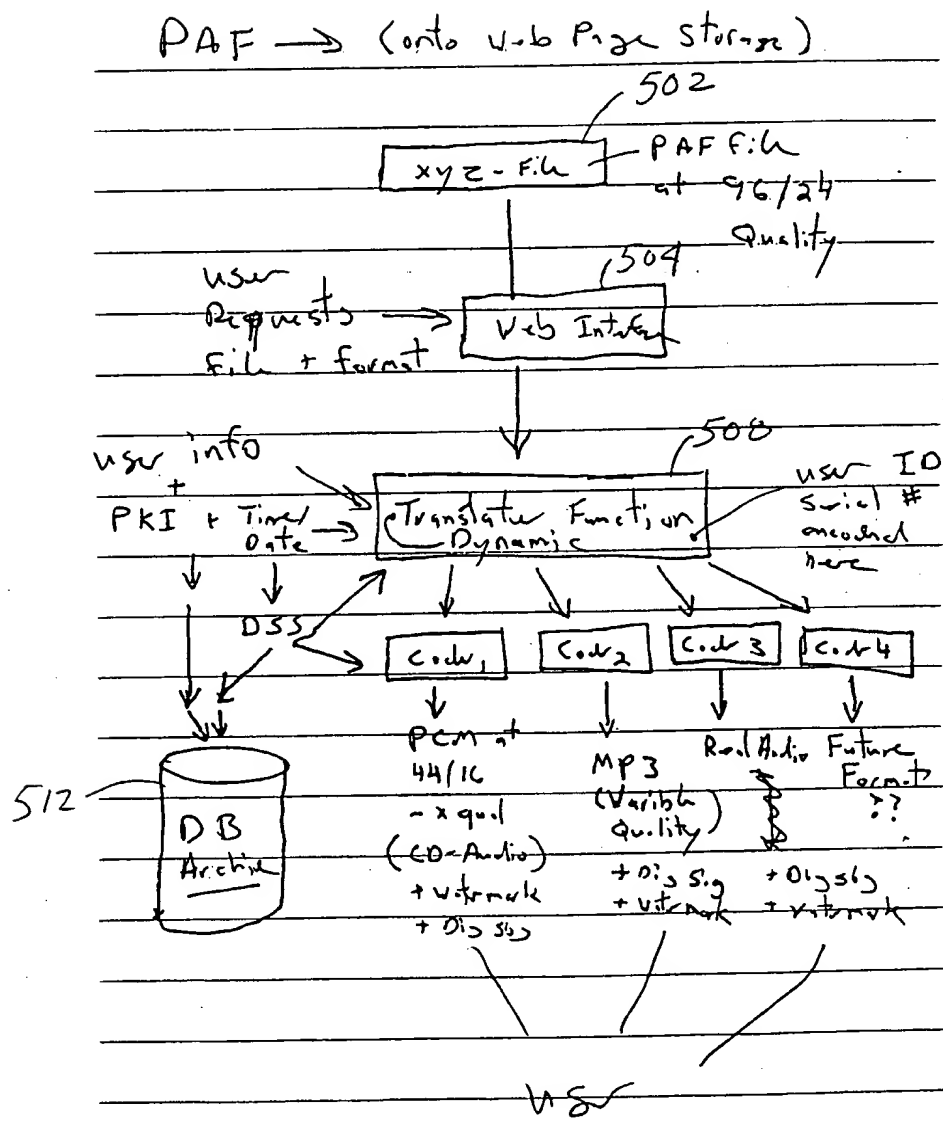 PAF → (onto Web Page Storage)
502
xyz-File
PAF file
at 96/24
Quality
504
User
Requests
File + format
Web Interface
508
user info
+
PKI + Time/
Date
Translator Function
Dynamic
user ID
Serial #
encoded
here
DSS
Coder 1
Coder 2
Coder 3
Coder 4
512
DB
Archive
PCM at
44/16
- x qual
(CD-Audio)
+ watermark
+ Dig sig
MP3
(Varible
Quality)
+ Dig Sig
+ watermark
Real Audio
Future
Format
??
+ Dig sig
+ watermark
User